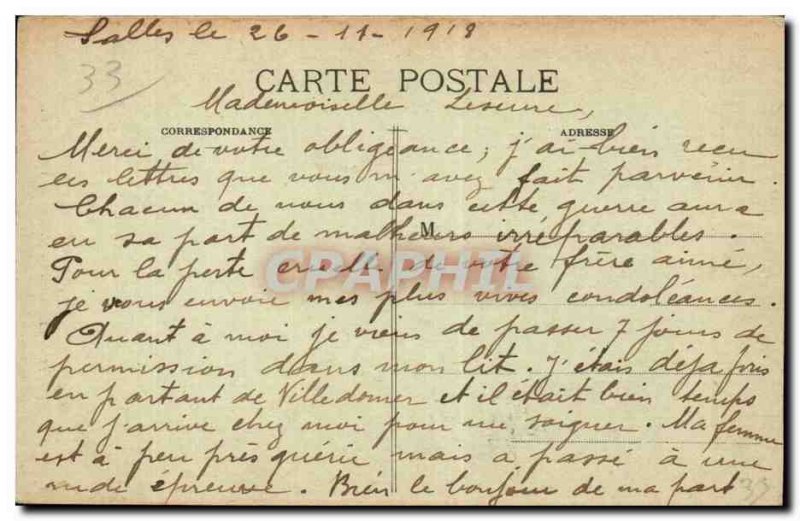 Salles le 26-11-1918
33
CARTE POSTALE
Mademoiselle Leseure,
CORRESPONDANCE
ADRESSE
Merci de votre obligeance; j'ai bien recu
les lettres que vous m'avez fait parvenir.
Chacun de nous dans cette guerre aura
M
eu sa part de malheurs irréparables.
CPAPHIL
Pour la perte cruelle de votre frère aimé,
je vous envoie mes plus vives condoléances.
Quant à moi je viens de passer 7 jours de
permission dans mon lit. J'étais déja fois
en partant de Villedomer et il était bien temps
que j'arrive chez moi pour me soigner. Ma femme
est à peu près guérie mais a passé à une
rude épreuve. Bien le bonjour de ma part
33